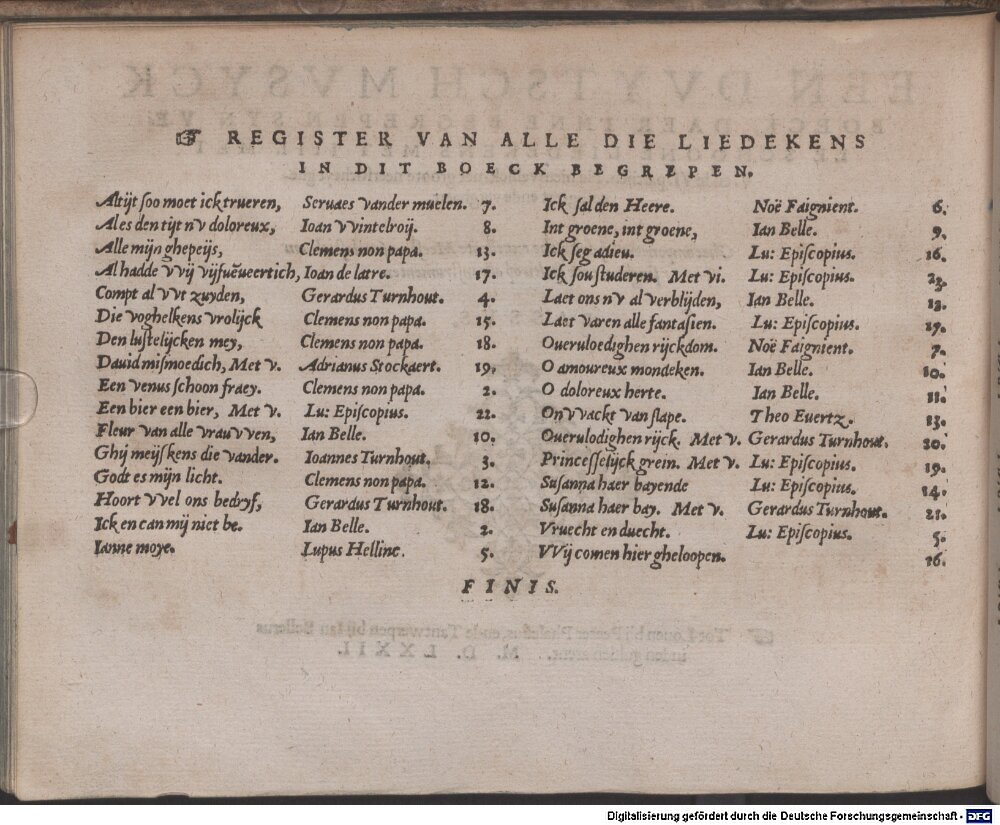 ☞ REGISTER VAN ALLE DIE LIEDEKENS
IN DIT BOECK BEGREPEN.
Altijt soo moet ick trueren, Seruaes vander muelen. 7.
Al es den tijt nv doloreux, Ioan VVintelroij. 8.
Alle mijn ghepeijs, Clemens non papa. 13.
Al hadde VVij vijfuẽueertich, Ioan de latre. 17.
Compt al vvt zuyden, Gerardus Turnhout. 4.
Die voghelkens vrolijck Clemens non papa. 15.
Den lustelijcken mey, Clemens non papa. 18.
Dauid mismoedich, Met v. Adrianus Stockaert. 19.
Een venus schoon fraey. Clemens non papa. 2.
Een bier een bier, Met v. Lu: Episcopius. 22.
Fleur van alle vrauvven, Ian Belle. 10.
Ghij meijskens die vander. Ioannes Turnhout. 3.
Godt es mijn licht. Clemens non papa. 12.
Hoort vvel ons bedryf, Gerardus Turnhout. 18.
Ick en can mij niet be. Ian Belle. 2.
Ianne moye. Lupus Helline. 5.
Ick sal den Heere. Noë Faignient. 6.
Int groene, int groene, Ian Belle. 9.
Ick seg adieu. Lu: Episcopius. 16.
Ick sou studeren. Met vi. Lu: Episcopius. 23.
Laet ons nv al verblijden, Ian Belle. 12.
Laet varen alle fantasien. Lu: Episcopius. 17.
Oueruloedighen rijckdom. Noë Faignient. 7.
O amoureux mondeken. Ian Belle. 10.
O doloreux herte. Ian Belle. 11.
Onvvackt van slape. Theo Euertz. 13.
Ouerulodighen rijck. Met v. Gerardus Turnhout. 20.
Princesselijck grein. Met v. Lu: Episcopius. 19.
Susanna haer bayende Lu: Episcopius. 14.
Susanna haer bay. Met v. Gerardus Turnhout. 21.
Vruecht en duecht. Lu: Episcopius. 5.
VVij comen hier gheloopen. 16.
FINIS.
Digitalisierung gefördert durch die Deutsche Forschungsgemeinschaft - DFG